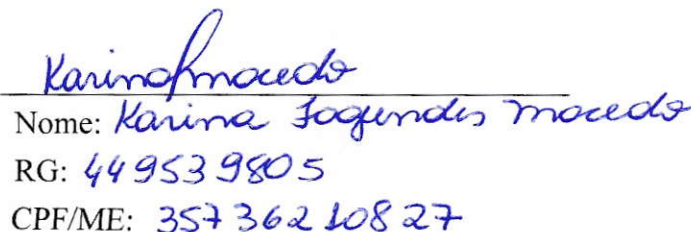 Karina Macedo
Nome: Karina Fagundes Macedo
RG: 449539805
CPF/ME: 35736210827